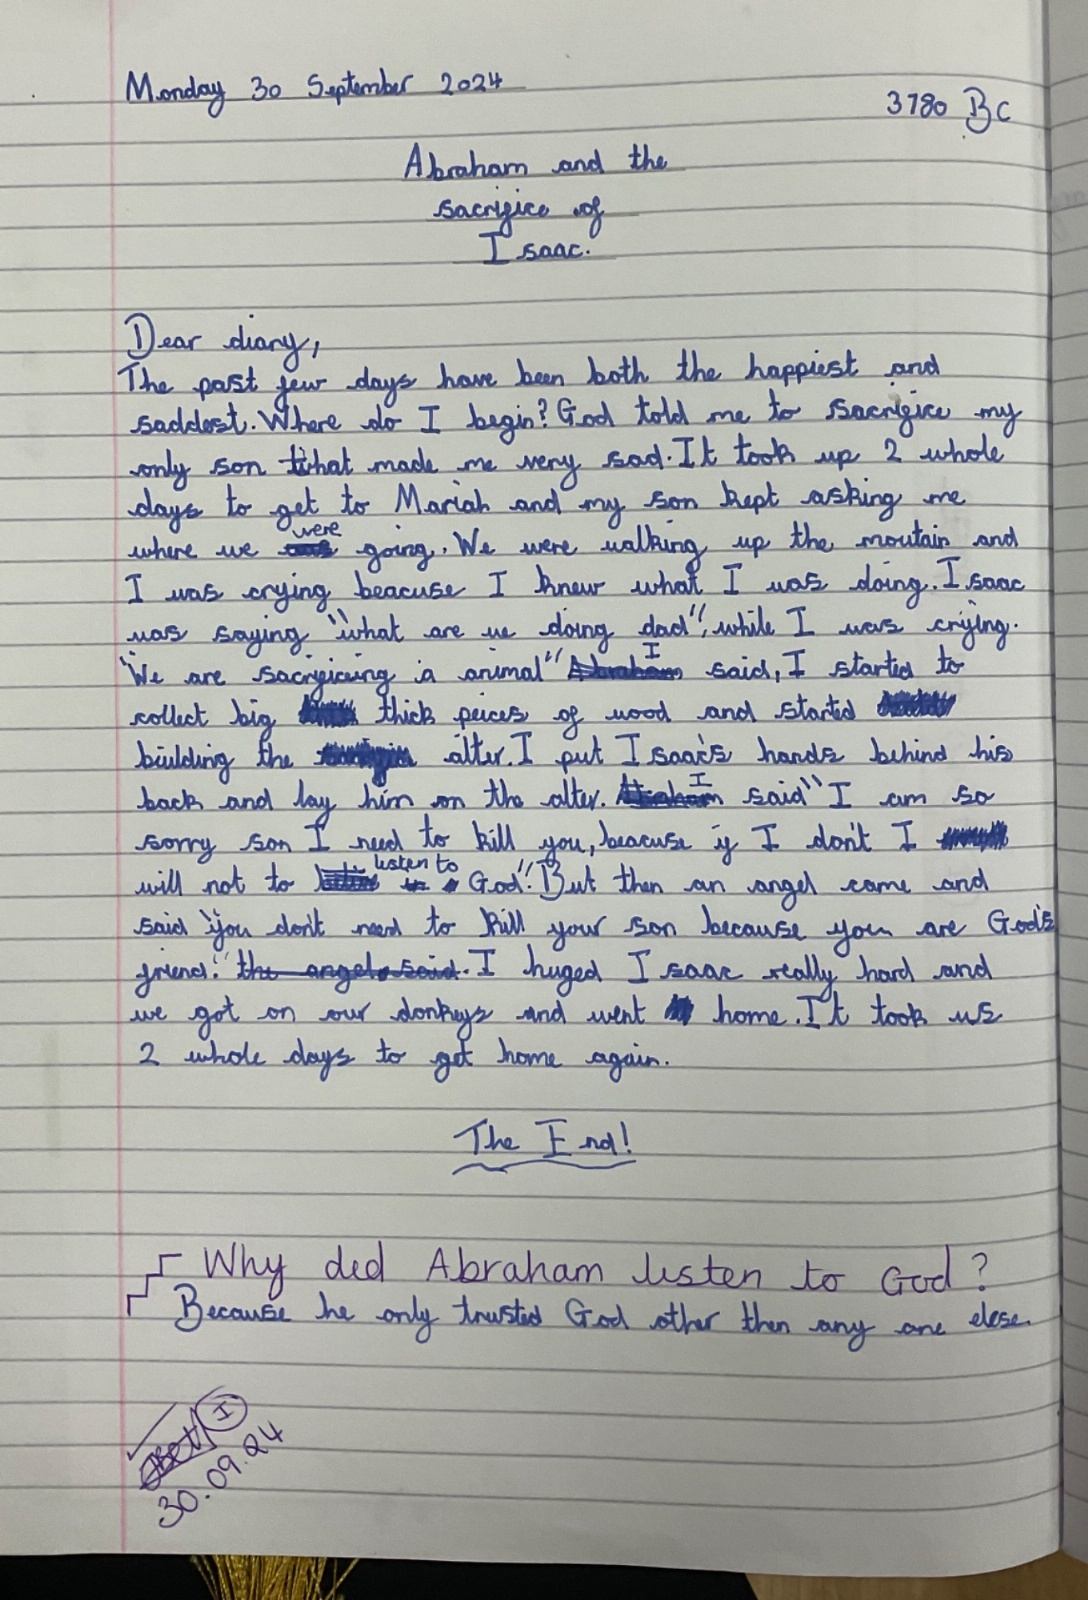 Monday 30 September 2024
3780 BC
Abraham and the
sacrifice of
Isaac.
Dear diary,
The past few days have been both the happiest and
saddest. Where do I begin? God told me to sacrifice my
only son that made me very sad. It took up 2 whole
days to get to Mariah and my son kept asking me
where we were going. We were walking up the moutain and
I was crying beacuse I knew what I was doing. Isaac
was saying "what are we doing dad", while I was crying.
"We are sacrificeing a animal" Abraham I said, I started to
collect big thick peices of wood and started
building the alter. I put Isaac's hands behind his
back and lay him on the alter. Abraham I said "I am so
sorry son I need to kill you, beacuse if I don't I
will not to listen to God". But then an angel came and
said "you don't need to kill your son because you are God's
friend." the angel said. I huged Isaac really hard and
we got on our donkeys and went home. It took us
2 whole days to get home again.
The End!
Why did Abraham listen to God?
Because he only trusted God other then any one elese.
I
30.09.24